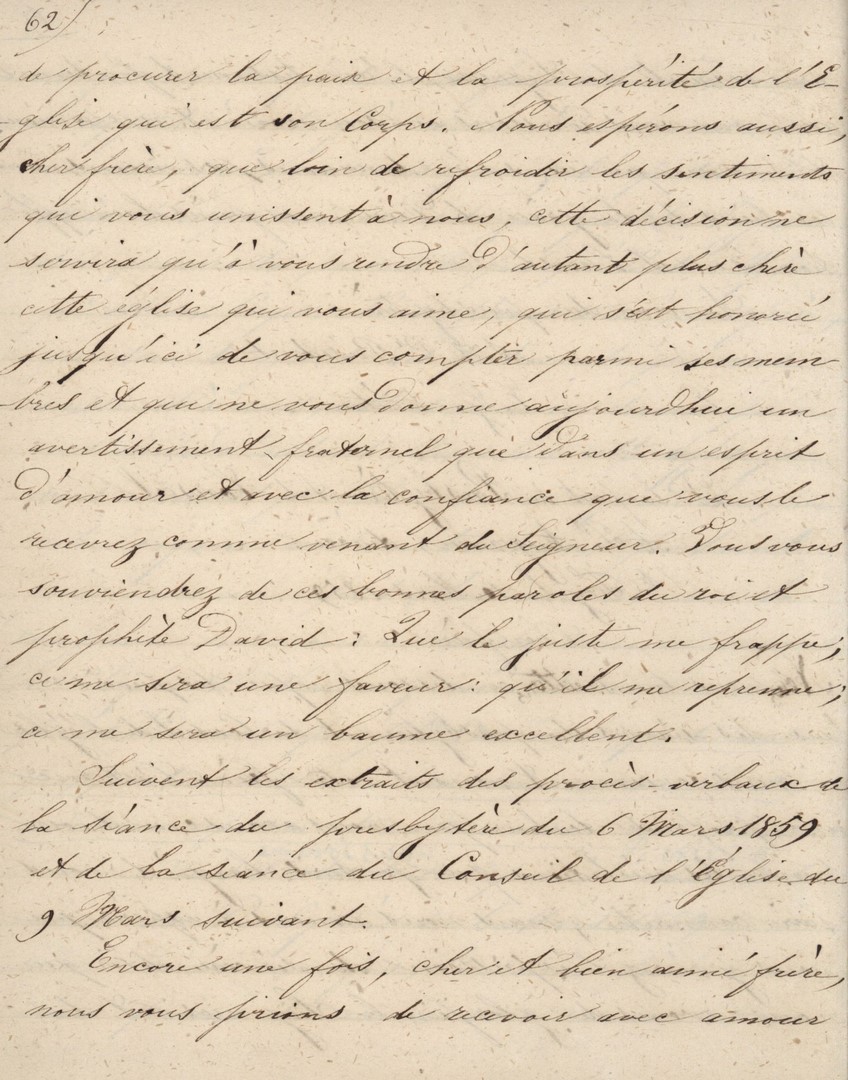 62)
de procurer la paix et la prospérité de l'É-
-glise qui est son Corps. Nous espérons aussi,
cher frère, que loin de refroidir les sentiments
qui vous unissent à nous, cette décision ne
servira qu'à vous rendre d'autant plus chère
cette église qui vous aime, qui s'est honorée
jusqu'ici de vous compter parmi ses mem
-bres et qui ne vous donne aujourd'hui un
avertissement fraternel que dans un esprit
d'amour et avec la confiance que vous le
recevrez comme venant du Seigneur. Vous vous
souviendrez de ces bonnes paroles du roi et
prophète David: Que le juste me frappe,
ce me sera une faveur: qu'il me reprenne;
ce me sera un baume excellent.
Suivent les extraits des procès-verbaux de
la séance du presbytère du 6 Mars 1859
et de la séance du Conseil de l'Église du
9 Mars suivant.
Encore une fois, cher et bien aimé frère,
nous vous prions de recevoir avec amour